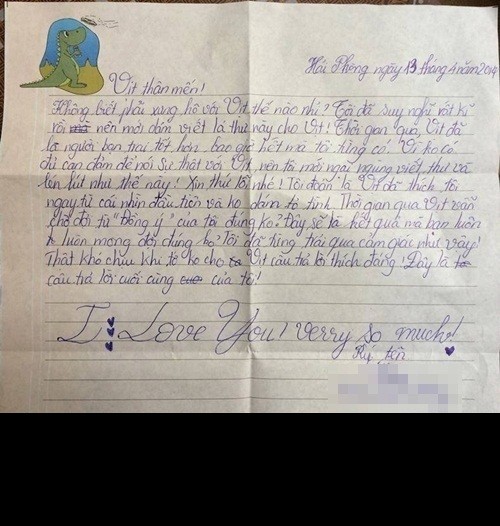 Hải Phòng ngày 13 tháng 4 năm 2014
Vịt thân mến!
Không biết phải xưng hô với Vịt thế nào nhỉ? Tôi đã suy nghĩ rất kĩ
rồi nên mới dám viết lá thư này cho Vịt! Thời gian qua, Vịt đã
là người bạn trai tốt hơn bao giờ hết mà tôi từng có! Vì ko có
đủ can đảm để nói sự thật với Vịt, nên tôi mới ngại ngùng viết thư và
lén lút như thế này! Xin thứ lỗi nhé! Tôi đoán là Vịt đã thích tôi
ngay từ cái nhìn đầu tiên và ko dám tỏ tình. Thời gian qua Vịt vẫn
chờ đợi từ "Đồng ý" của tôi đúng ko? Đây sẽ là kết quả mà bạn luôn
luôn mong đợi đúng ko? Tôi đã từng trải qua cảm giác như vậy!
Thật khó chịu khi tớ ko cho Vịt câu trả lời thích đáng! Đây là
câu trả lời cuối cùng của tôi!
I Love You! Verry so much!
Ký tên